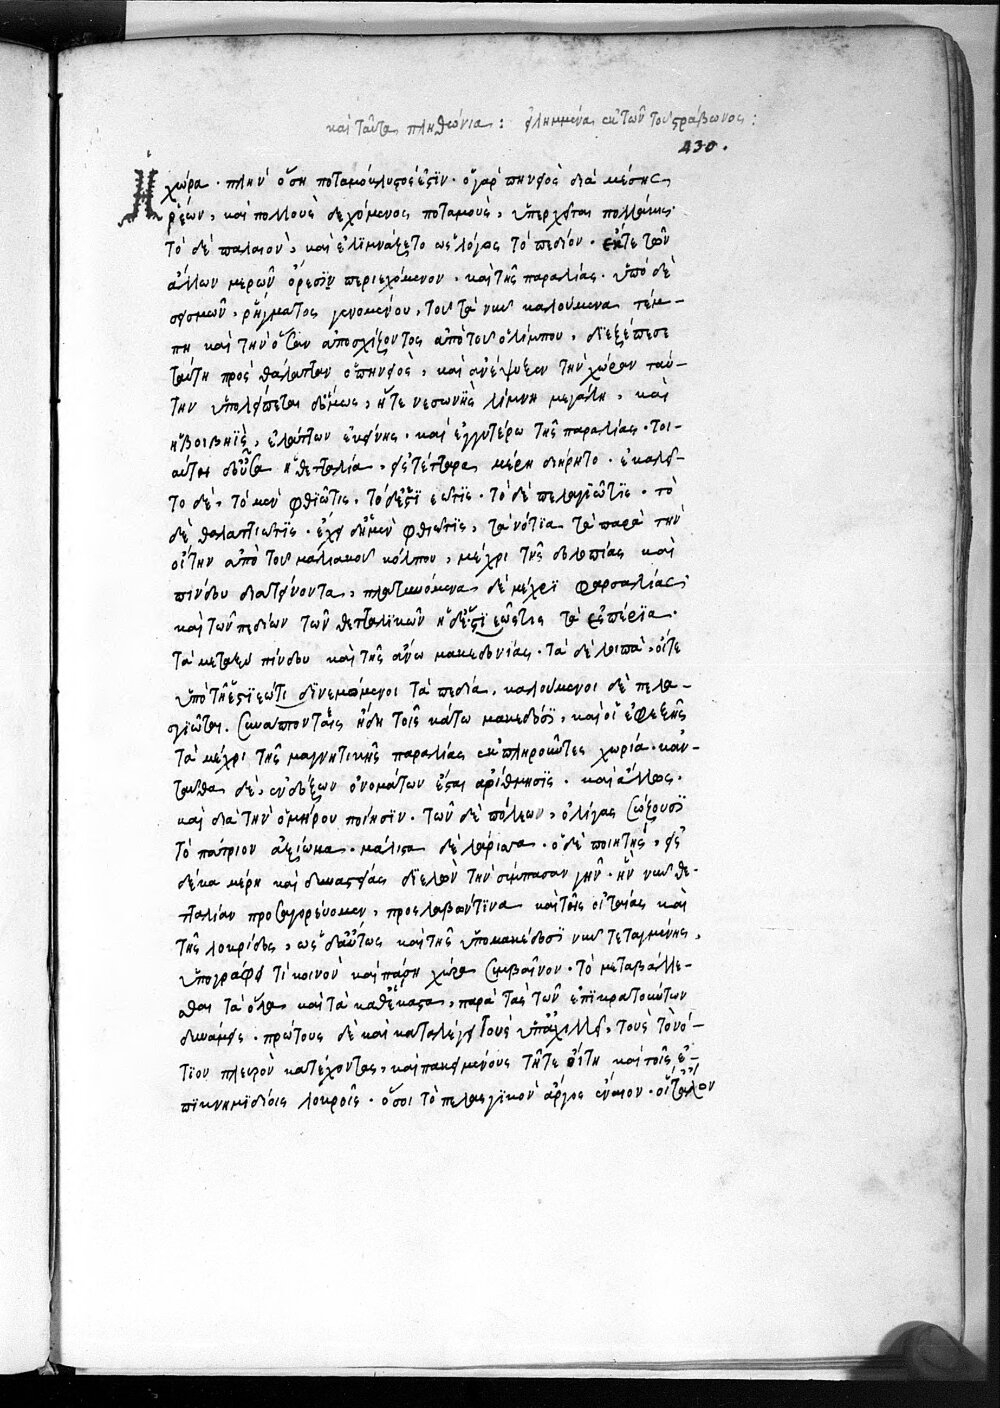 καὶ ταῦτα πληθώνια : εἰλημμένα ἐκ τῶν τοῦ στράβωνος :
430.
Ἡ χώρα · πλὴν ὅση ποταμόκλυστός ἐστϊν · ὁ γὰρ πηνειὸς διὰ μέσης
ῥέων, καὶ πολλοὺς δεχόμενος ποταμοὺς, ὑπερχεῖται πολλάκις·
τὸ δὲ παλαιὸν, καὶ ἐλϊμνάζετο ὡς λόγος τὸ πεδίον · ἔκ τε τῶν
ἄλλων μερῶν ὄρεσϊν περιεχόμενον · καὶ τῆς παραλίας · ὑπὸ δὲ
σεισμῶν, ῥήγματος γενομένου, τοῦ τὰ νῦν καλούμενα τέμ-
πη καὶ τὴν ὄσσαν ἀποσχίζοντος ἀπὸ τοῦ ὀλύμπου, διεξέπεσε
ταύτη πρὸς θάλατταν ὁ πηνειὸς, καὶ ἀνέψυξεν τὴν χώραν ταύ-
την ὑπολείπεται δ' ὅμως, ἥ τε νεσωνὶς λίμνη μεγάλη, καὶ
ἡ βοιβηῒς, ἐλάττων ἐκείνης · καὶ ἐγγυτέρω τῆς παραλίας · τοι-
αύτη δ' οὖσα ἡ θετταλία · εἰς τέτταρα μέρη διήρητο · ἐκαλεῖ-
το δὲ, τὸ μὲν φθϊῶτις, τὸ δὲ ἑστϊεῶτϊς · τὸ δὲ πελασγϊῶτϊς · τὸ
δὲ θεσσαλϊῶτϊς · ἔχει δ' ἡ μὲν φθϊῶτϊς, τὰ νότϊα τὰ παρὰ τὴν
οἴτην ἀπὸ τοῦ μαλιακοῦ κόλπου, μέχρι τῆς δολοπίας καὶ
πίνδου διατείνοντα, πλατυνόμενα δὲ μέχρϊ φαρσαλίας
καὶ τῶν πεδίων τῶν θετταλϊκῶν ἡ δὲ ἑστϊεῶτις τὰ ἑσπέρϊα ·
τὰ μεταξὺ πίνδου καὶ τῆς ἄνω μακεδονίας · τὰ δὲ λοιπὰ, οἵ τε
ὑπὸ τῇ ἑστϊεώτιδϊ νεμόμενοι τὰ πεδία, καλούμενοι δὲ πελα-
σγϊῶται. συνάπτοντες ἤδη τοῖς κάτω μακεδόσϊ, καὶ οἱ ἐφεξῆς
τὰ μέχρι τῆς μαγνητικῆς παραλίας ἐκπληροῦντες χωρία · κἀν-
ταῦθα δὲ, ἐνδόξων ὀνομάτων ἔσται ἀρίθμησϊς · καὶ ἄλλως ·
καὶ διὰ τὴν ὁμήρου ποίησϊν · τῶν δὲ πόλεων, ὀλίγας σώζουσϊ
τὸ πάτριον ἀξίωμα · μάλιστα δὲ λάρισσα · ὁ δὲ ποιητὴς, εἰς
δέκα μέρη καὶ δυναστείας διελὼν τὴν σύμπασαν γῆν · ἣν νῦν θε-
τταλίαν προσαγορεύομεν, προσλαβών τϊνα καὶ τῆς οἰταίας καὶ
τῆς λοκρίδος, ὡς δ' αὕτως καὶ τῆς ὑπὸ μακεδόσϊ νῦν τεταγμένης,
ὑπογράφει τὶ κοινὸν καὶ πάσῃ χώρα συμβαῖνον · τὸ μεταβάλλε-
σθαι τὰ ὅλα καὶ τὰ καθ' ἕκαστα, παρὰ τὰς τῶν ἐπϊκρατούντων
δυνάμεις · πρώτους δὲ καὶ καταλέγει τοὺς ὑπ' ἀχιλλεῖ, τοὺς τὸ νό-
τϊον πλευρὸν κατέχοντας, καὶ παρακειμένους τῆ τε οἴτη καὶ τοῖς ἐ-
πϊκνημϊδίοις λοκροῖς · ὅσοι τὸ πελασγϊκὸν ἄργος ἔναιον · οἵ τ' ἄλον